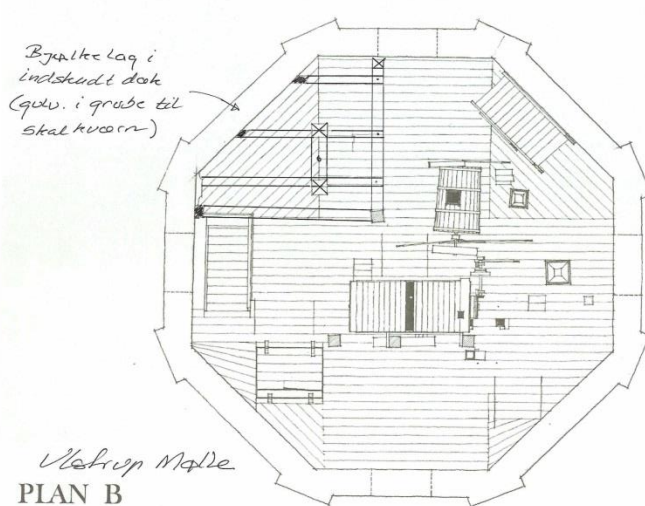 Bjælkelag i
indskudt dæk
(gulv. i grube til
skalkværn)
Ulstrup Mølle
PLAN B